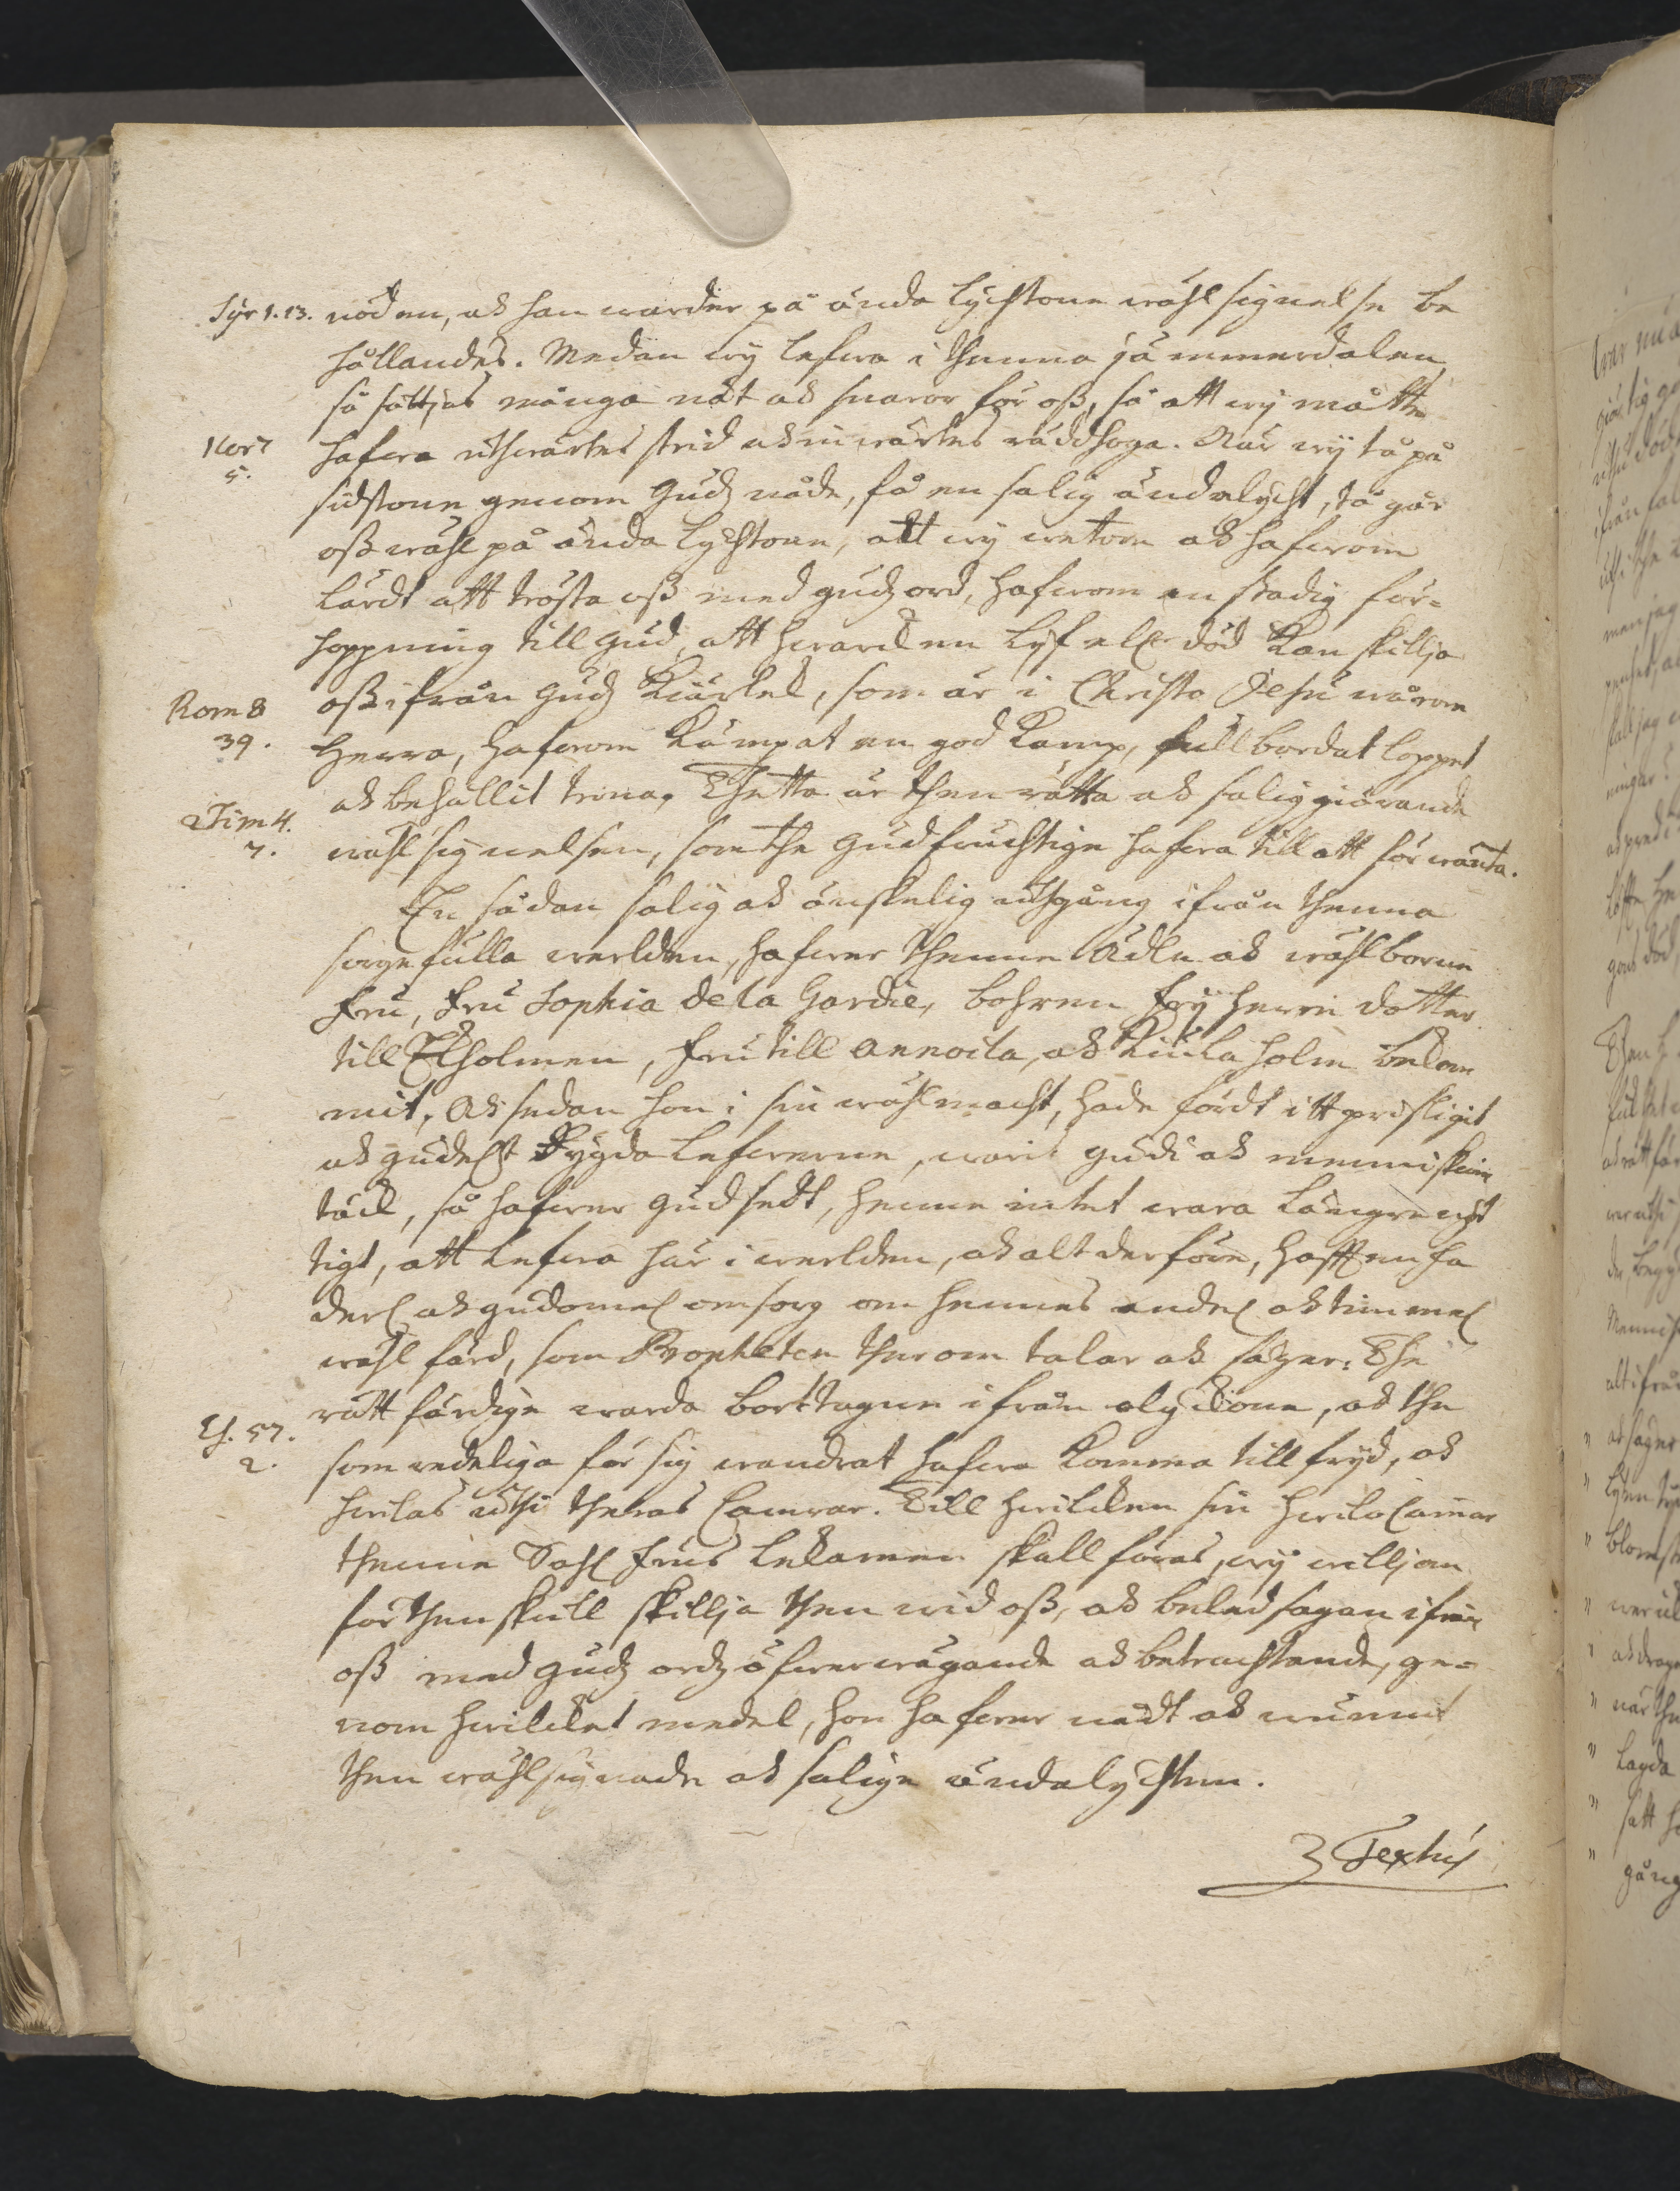 Syr 1. 13. nöden, ok han warder på ända lychtone wählsignelse be
hållandes. Medan wy lefwa i thenna jämmerdalen
så sättjas många nät ok snaror för oß, så att wy måtte
2 Cor 7 5. hafwa uthwärtes strid ok inwärtes räddhoga. När wy tå på
sidstone genom Gudz nåde, få en salig ändalycht, tå går
oß wähl på ända lychtone, att wy wetom ok hafwom
lärdt att trösta oß med gudz ord, hafwom en stadig för-
hoppning till Gud, att hwarcken lyf eller död kan skillja
Rom 8 39. oß ifrån Gudz kiärlek, som är i Christo Jesu wårom
Herra, hafwom kämpat en god kamp, fullbordat loppet
2 Tim 4. 7. ok behållit trona. Thetta är then rätta ok saliggiörande
wählsignelsen, som the Gudfruchtige hafwa till att förwänta.
En sådan salig ok önskelig uthgång ifrån thenna
sorgefulla werlden, hafwer thenne Ädle ok wählborne
Fru, Fru Sophia De la Gardie, bohren Fryherre dotter
till Ekholmen, Fru till Annoila, ok Kiulaholm bekom
mit. Ok sedan hon i sin wählmacht, hade fördt itt prisligit
ok gudeligt dygda lefwerne, warit Gudi ok menniskiom
täck, så hafwer Gud sedt, henne intet wara längre nyt
tigt, att lefwa här i werlden, ok altderföre, hafft en fa
derlig ok gudomelig omsorg om hennes andelig ok timmelig
wählfärd, som Propheten ther om talar ok säger: The
Es. 57. 2. rättfärdige warda borttagne ifrån olyckone, ok the
som redeliga för sig wandrat hafwa komma till fryd, ok
hwilas uthi theras Camrar. Till hwilcken sin hwilo Camar
thenne Sahl. Frus lekamen skall föras, wy williom
för then skull skillja then wid oß, ok beledsagan ifrån
oß med Gudz ordz öfwerwägande ok betrachtande, ge-
nom hwilcket medel, hon hafwer nådt ok wunnit
then wählsignade ok salige ändalychten.
Textus